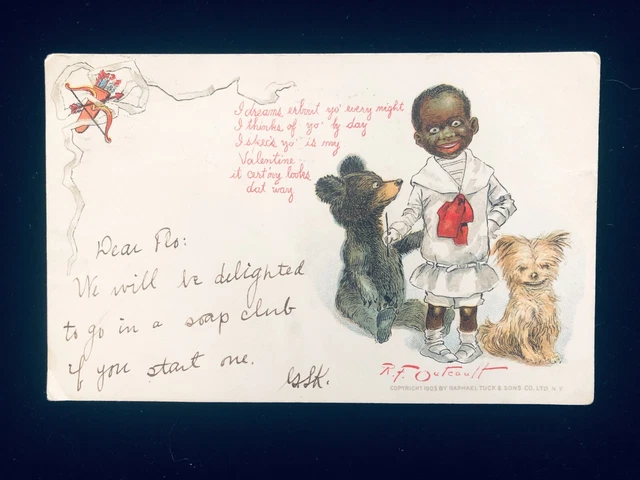 I dreams erbout yo' every night
I thinks of yo' by day
I skee's yo' is my
Valentine
it cert'ny looks
dat way
Dear Flo:
We will be delighted
to go in a soap club
if you start one.
R.F. Outcault
COPYRIGHT 1903 BY RAPHAEL TUCK & SONS CO., LTD. N.Y.